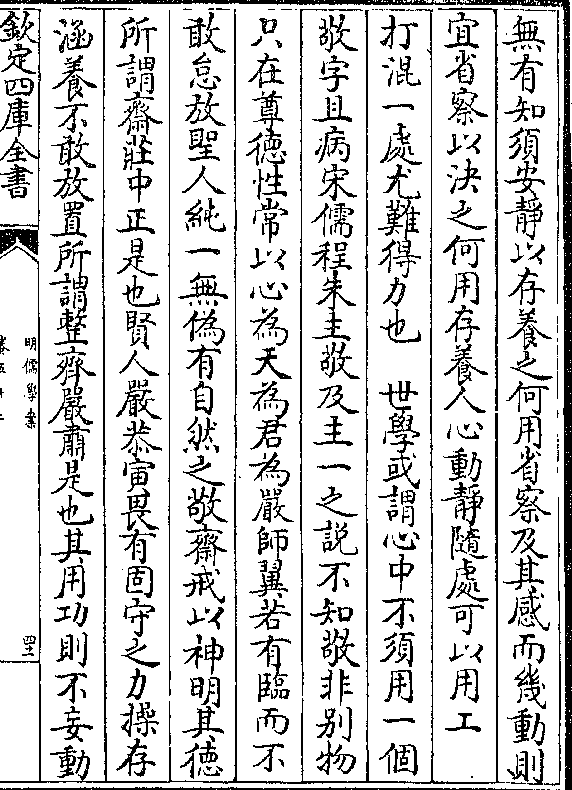 無有知須安靜以存養之何用省察及其感而幾動則
宜省察以決之何用存養人心動靜隨處可以用工
打混一處尤難得力也　世學或謂心中不須用一個
敬字且病宋儒程朱主敬及主一之說不知敬非别物
只在尊德性常以心為天為君為嚴師翼若有臨而不
敢怠放聖人純一無偽有自然之敬齋戒以神明其德
所謂齋莊中正是也賢人嚴恭寅畏有固守之力操存
涵養不敢放置所謂整齊嚴肅是也其用功則不妄動
欽定四庫全書
明儒學案